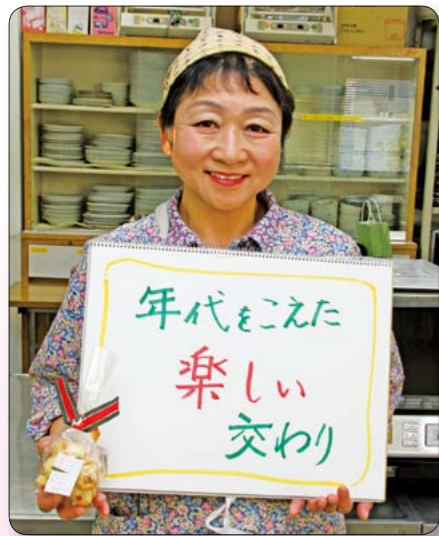 年代をこえた
楽しい
交わり